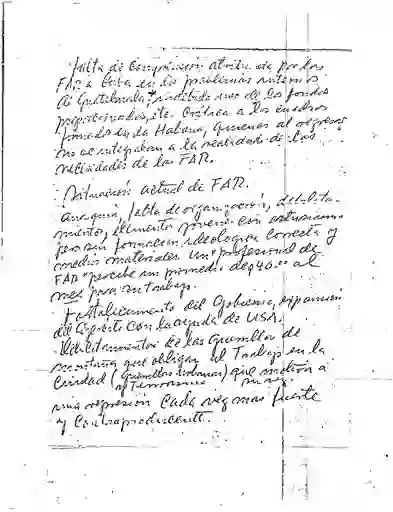 falta de comprensión atribuida por las
FAR a Cuba en los problemas internos
de Guatemala, indebido uso de los fondos
proporcionados, etc. Crítica a los cuadros
formados en la Habana, quienes al regresar
no se integraban a la realidad de las
necesidades de las FAR.
Situación actual de FAR.
Anarquía, falta de organización, debilita-
miento, elemento joven con entusiasmo
pero sin formación ideológica correcta y
medios materiales. Un "profesional de
FAR" percibe un promedio de Q40.00 al
mes para su trabajo.
Fortalecimiento del Gobierno, expansión
del Ejército con la ayuda de USA.
Debilitamientos de las Guerrillas de
montaña que obligan al Trabajo en la
Ciudad (Guerrillas Urbanas) que motiva a
y Terrorismo
una represión cada vez mas fuerte
y Contraproducente.